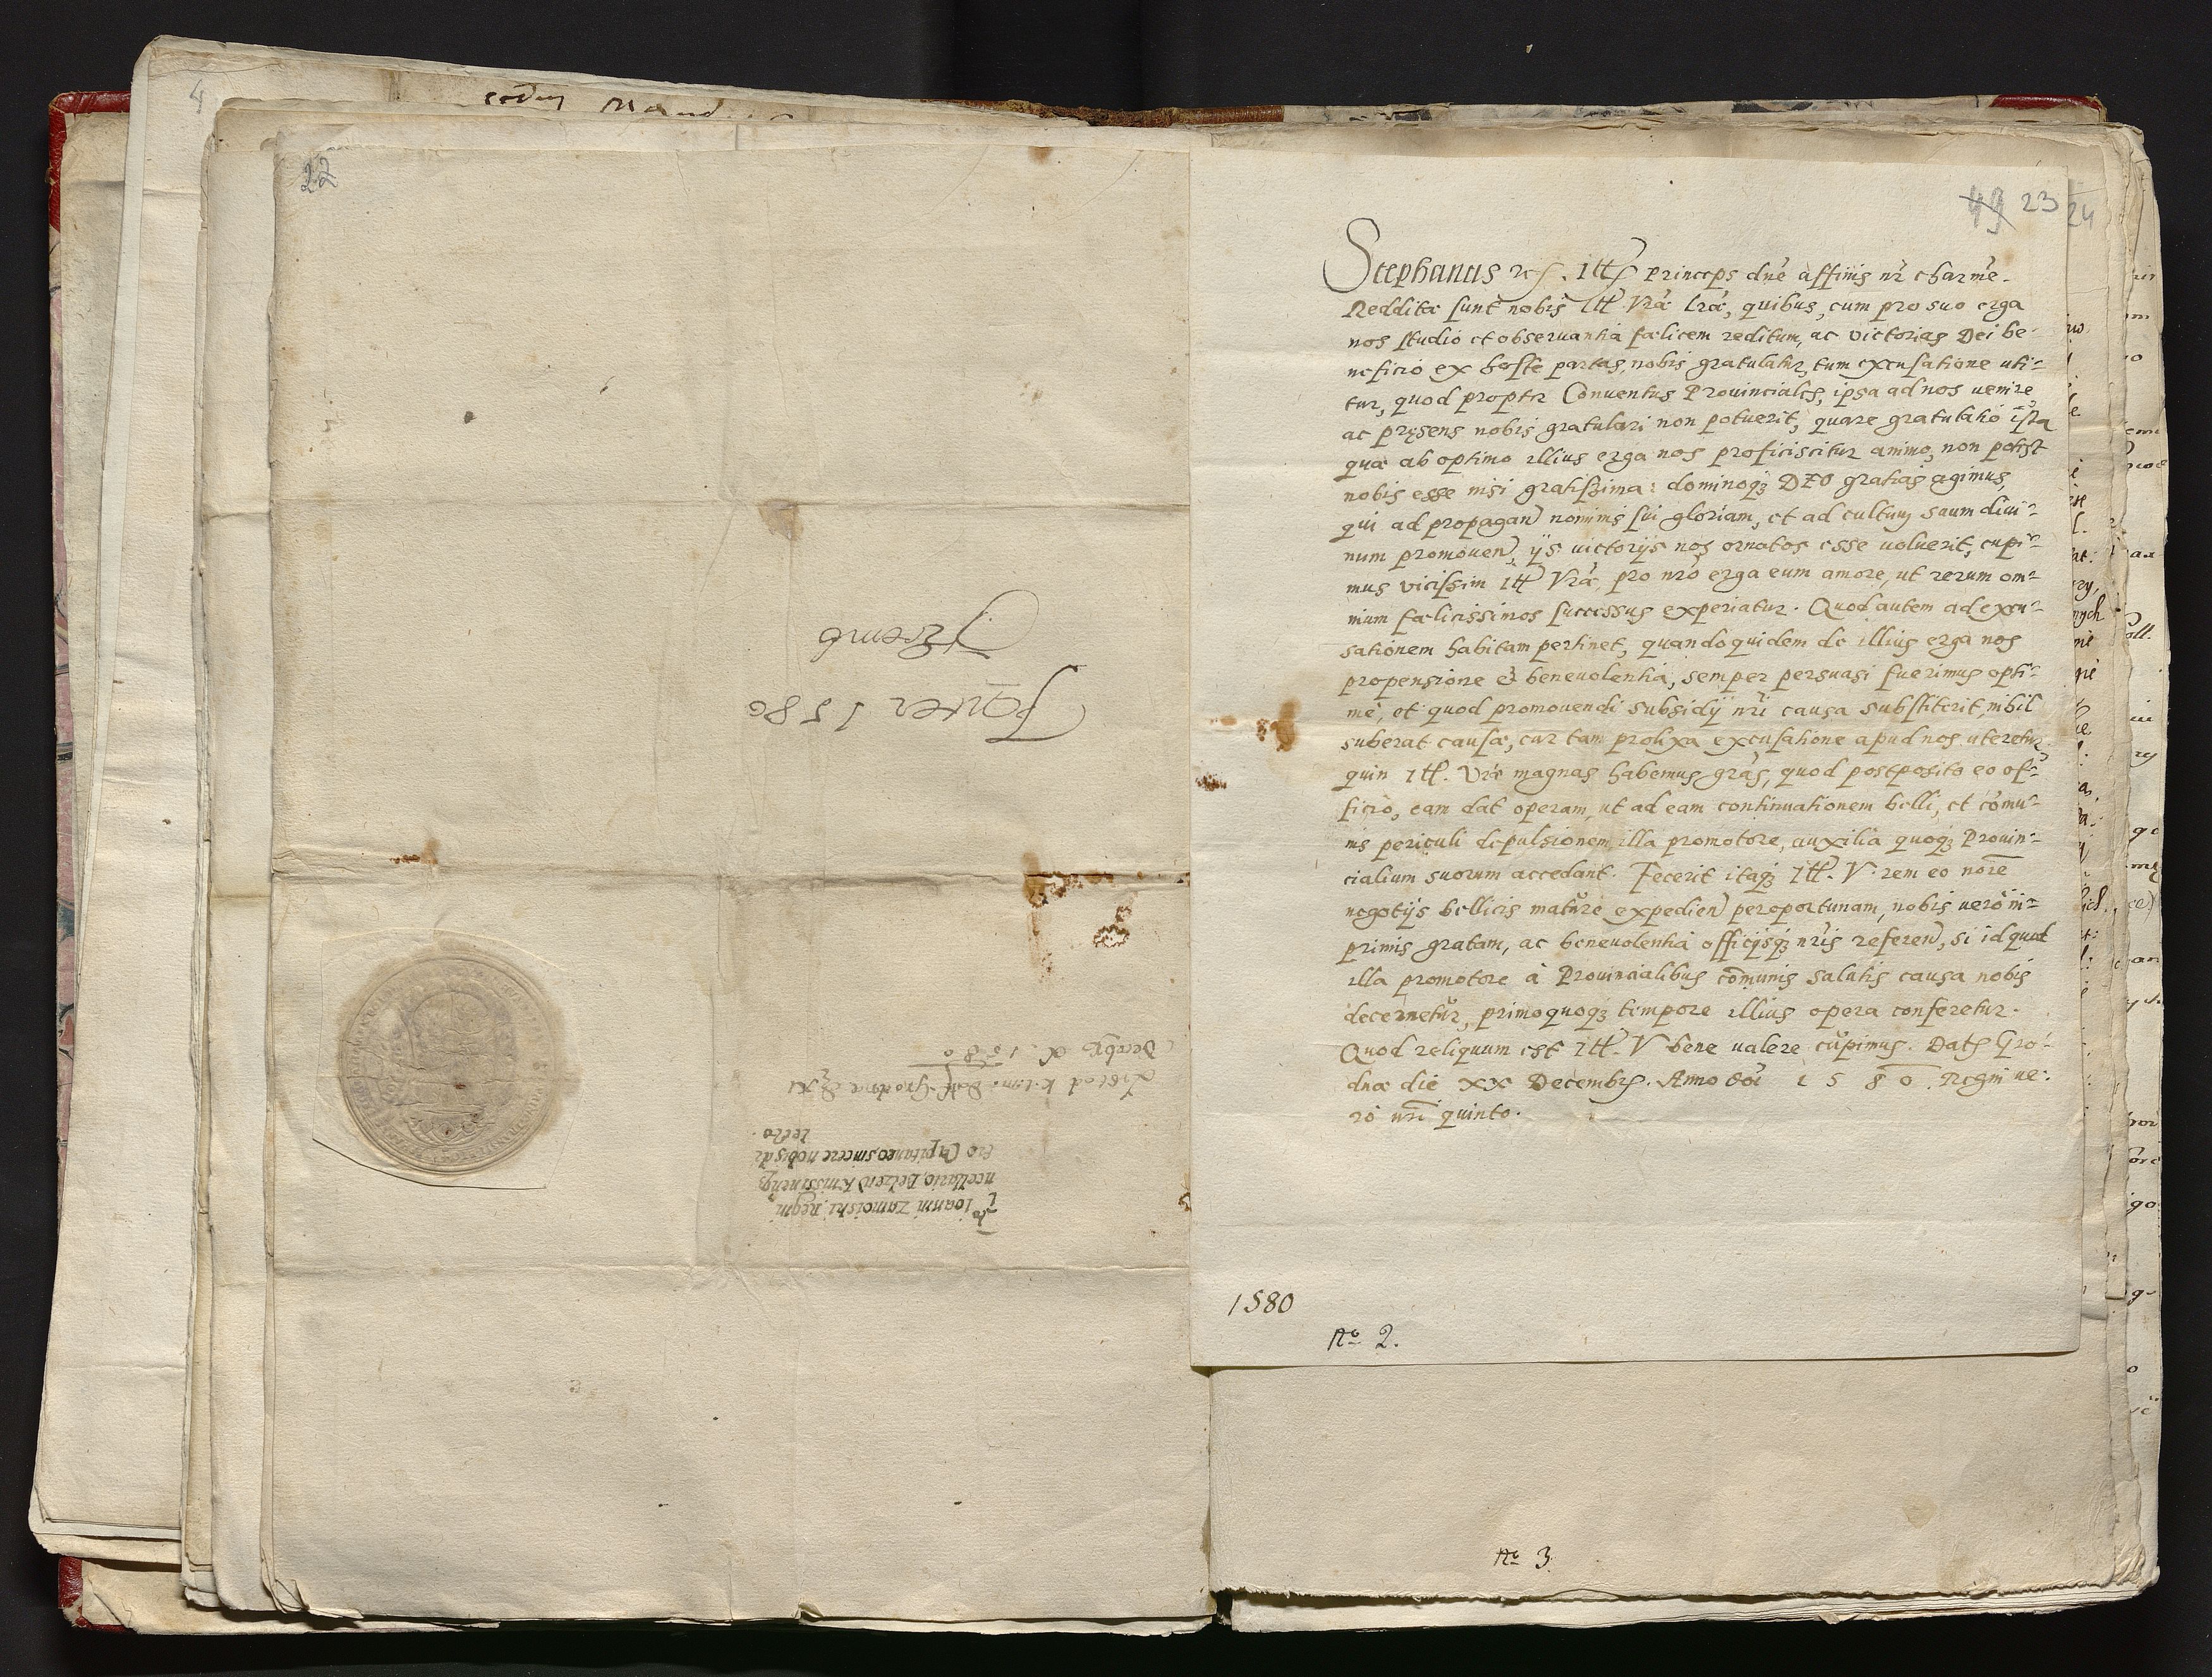 22
Jariter 1580
Xcemb
Joanni Zamoiski Regni
ncellario, Belzeñ Knissineñq₃
ero Capitaneo, sincere nobis di
lecto.
List od k. Jmi. Datt Grodnæ
Decēbr. A. 1580
49 23
24
Stephanus rex. Ill. Princeps dn̄e affinis nr̄ charm̄e.
Redditæ sunt nobis Ill. Vrǣ lrǣ, quibus, cum pro suo erga
nos studio et observantia fælicem reditum, ac victorias Dei be-
neficio ex hoste partas, nobis gratulatur, tum excusatione uti-
tur, quod propter Conventus Provinciales, ipsa ad nos venire,
ac pręsens nobis gratulari non potuerit, quare gratulatio ista
quæ ab optimo illius erga nos proficiscitur animo, non potest
nobis esse nisi gratissima: dominoq₃ DEO gratias agimus,
qui ad propagan) nominis sui gloriam, et ad cultum suum divi-
num promoven), ijs victorijs nos ornatos esse voluerit, cupi-
mus vicissim Ill. Vrǣ, pro nrō erga eum amore, ut rerum om-
nium fælicissimos successus experiatur. Quod autem ad excu-
sationem habitam pertinet, quandoquidem de illius erga nos
propensione & benevolentia, semper persuasi fuerimus opti-
me, et quod promovendi subsidij nrī causa substiterit, nihil
suberat causæ, cur tam prolixa excusatione apud nos uteretur
quin Ill. Vrǣ magnas habemus grās, quod postposito eo of-
ficio, eam dat operam, ut ad eam continuationem belli, et com̄u-
nis periculi depulsionem, illa promotore, auxilia quoq₃ Provin-
cialium suorum accedant. Fecerit itaq₃ Ill. V. rem eo nōre
negotijs bellicis mature expedien) peroportunam, nobis verò in-
primis gratam, ac benevolentia officijsq₃ nrīs referen), si id quod
illa promotore à Provincialibus com̄unis salutis causa nobis
decernetur, primo quoq₃ tempore illius opera conferetur.
Quod reliquum est Ill. V bene valere cupimus. Dat. Gro-
dnæ die XX Decembr. Anno dnī 1580. Regni ve-
rò nrī quinto.
1580
No 2.
No 3.